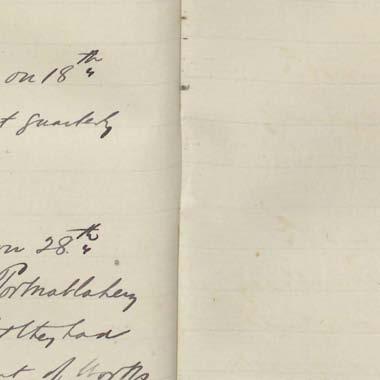 on 18th
t quarterly
on 28th
Portnablahey
they had
nt of Works